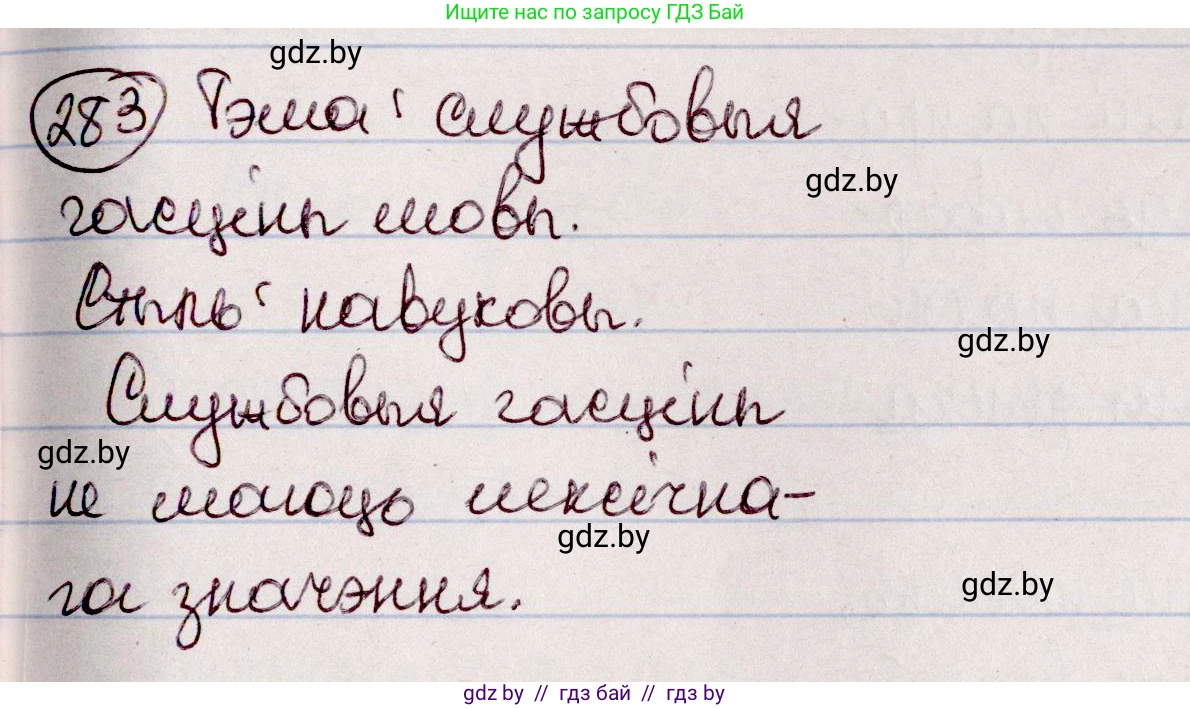 Ищите нас по запросу ГДЗ Бай
gdz.by
283 Тэма: службовыя
gdz.by
часціны мовы.
Стыль: навуковы.
gdz.by
Службовыя часціны
gdz.by
не маюць лексічна-
gdz.by
га значэння.
gdz.by
gdz.by // гдз бай // гдз by